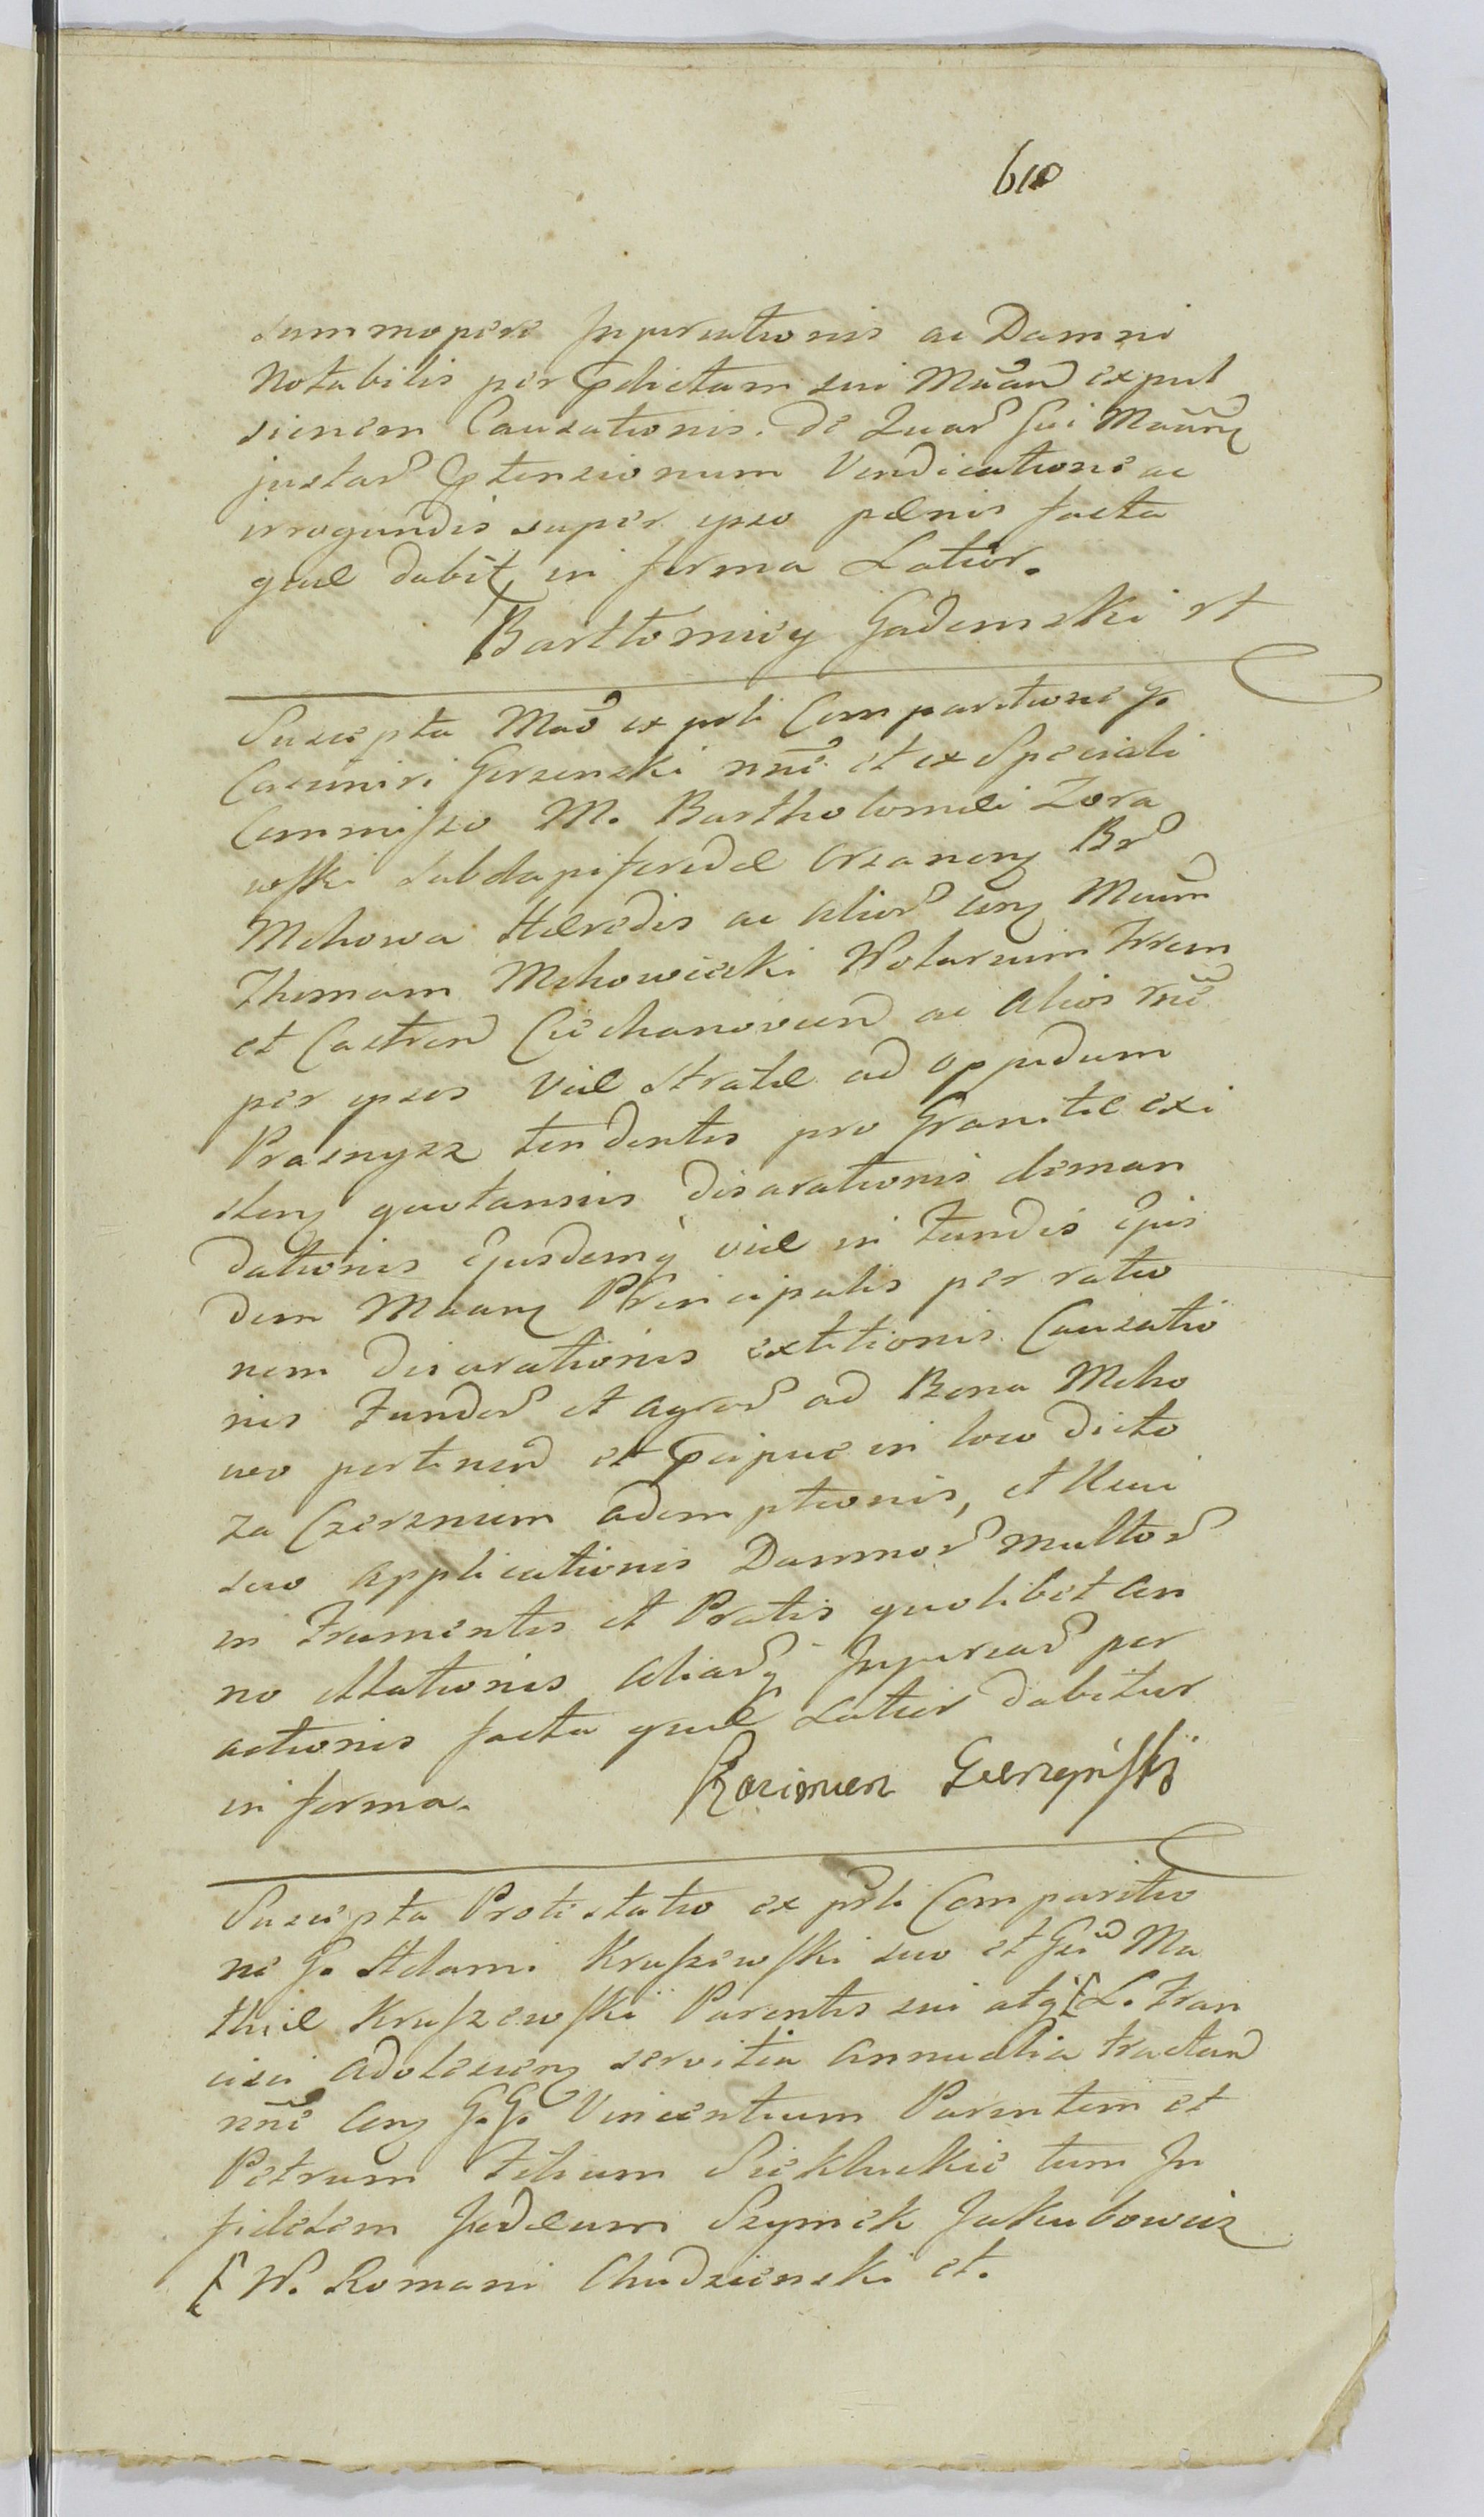 610
summopere Injuriationis ac Damni
Notabilis per Pdictam sui Mãan expul
sionem Causationis. de Quar Sui Mãany
justar Ptensionum Vendicatione ac
irrogandis super ipso pænis facta
quæ dabit in forma Latior.
Bartłomiey Gadomski st
Suscepta Mão ex psli Comparitione G.
Casimiri Gerzenski nñe et ex Speciali
Commisso M. Bartholomæi Zora
wski Subdapiferidæ Orzaneny Br
Mchowa Hæredis ac alior cny Mũm
Thomam Mchowiecki Notarium Trrem
et Castren Ciechanovien ac alios rñe
per ipsos Viæ Stratæ ad oppidum
Prasnysz tendentis pro Granitie exi
steny quotannis disarationis deman
dationis Ejusdemq viæ in Fundis Ejus
dem Maany Principalis per ratio
nem disarationis extitionis Causatio
nis Fundor et agror ad Bona Mcho
wo pertinen et Pcipue in loco dicto
za Czerzniem ademptionis, et Usui
suo applicationis Damnor multor
in Frumentis et Pratis quolibet an
no illationis aliarq Injuriar per
actionis facta quæ Latior dabitur
in forma.
Kazimierz Gierzyński
Suscepta Protestatio ex psli Comparitio
ne G. Adami Kruszewski suo et Gsi Ma
thiæ Kruszewski Parentis sui atq [L. Fran
cisci adolesceny servitia annualia tractan
nñe cny G.G. Vincentium Parentem et
Petrum Filium Siekluckie tum In
fidelem Judæum Szymek Jakubowicz
[W. Romani Chudzienski et.